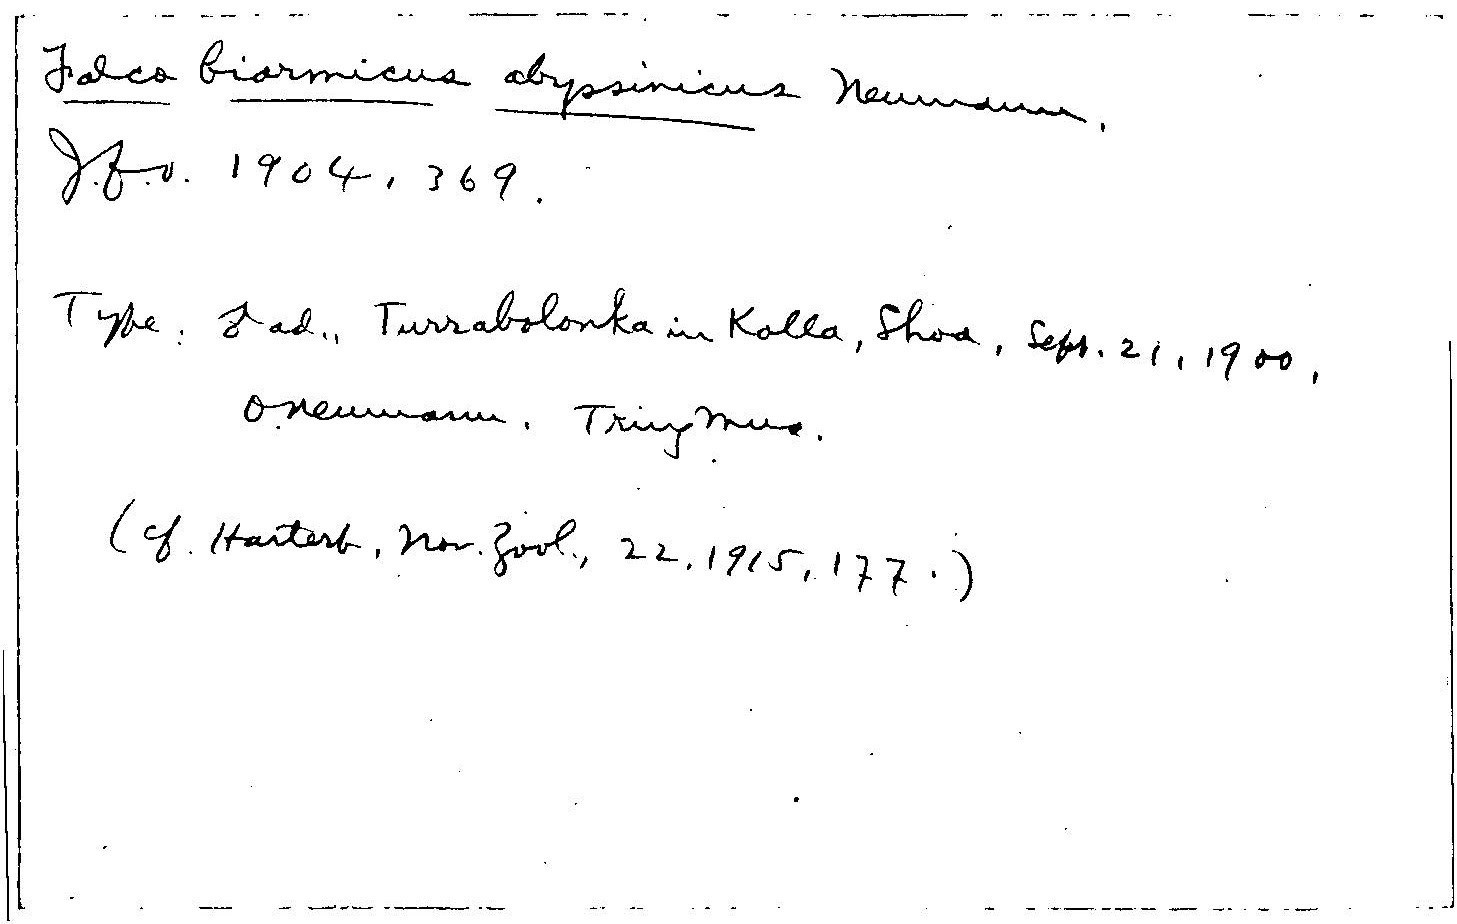 Falco biarmicus abyssinicus Neumann.
J.f.O. 1904, 369.
Type: ♂ ad., Turrabolonka in Kolla, Shoa, Sept. 21, 1900,
O. Neumann. Tring Mus.
(cf. Hartert, Nov. Zool., 22, 1915, 177.)